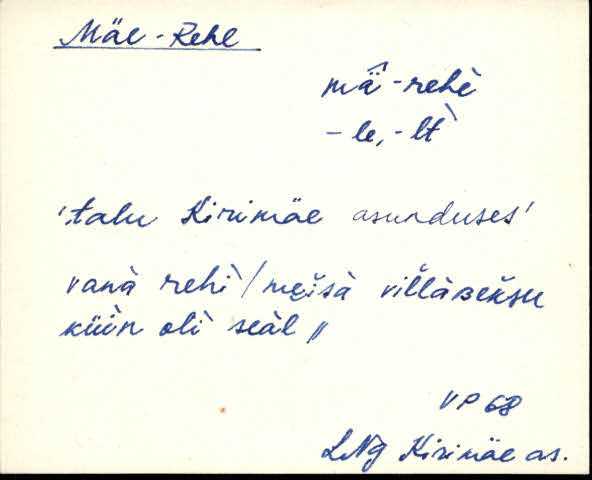 Mäe-Rehe
mä̂-rehè
-le, -lt̀
'talu Kirimäe asunduses'
vanà rehì / mei̯sà vil̆l̀àʙeksu
küǜn olì seàl //
VP 68
LNg Kirimäe as.